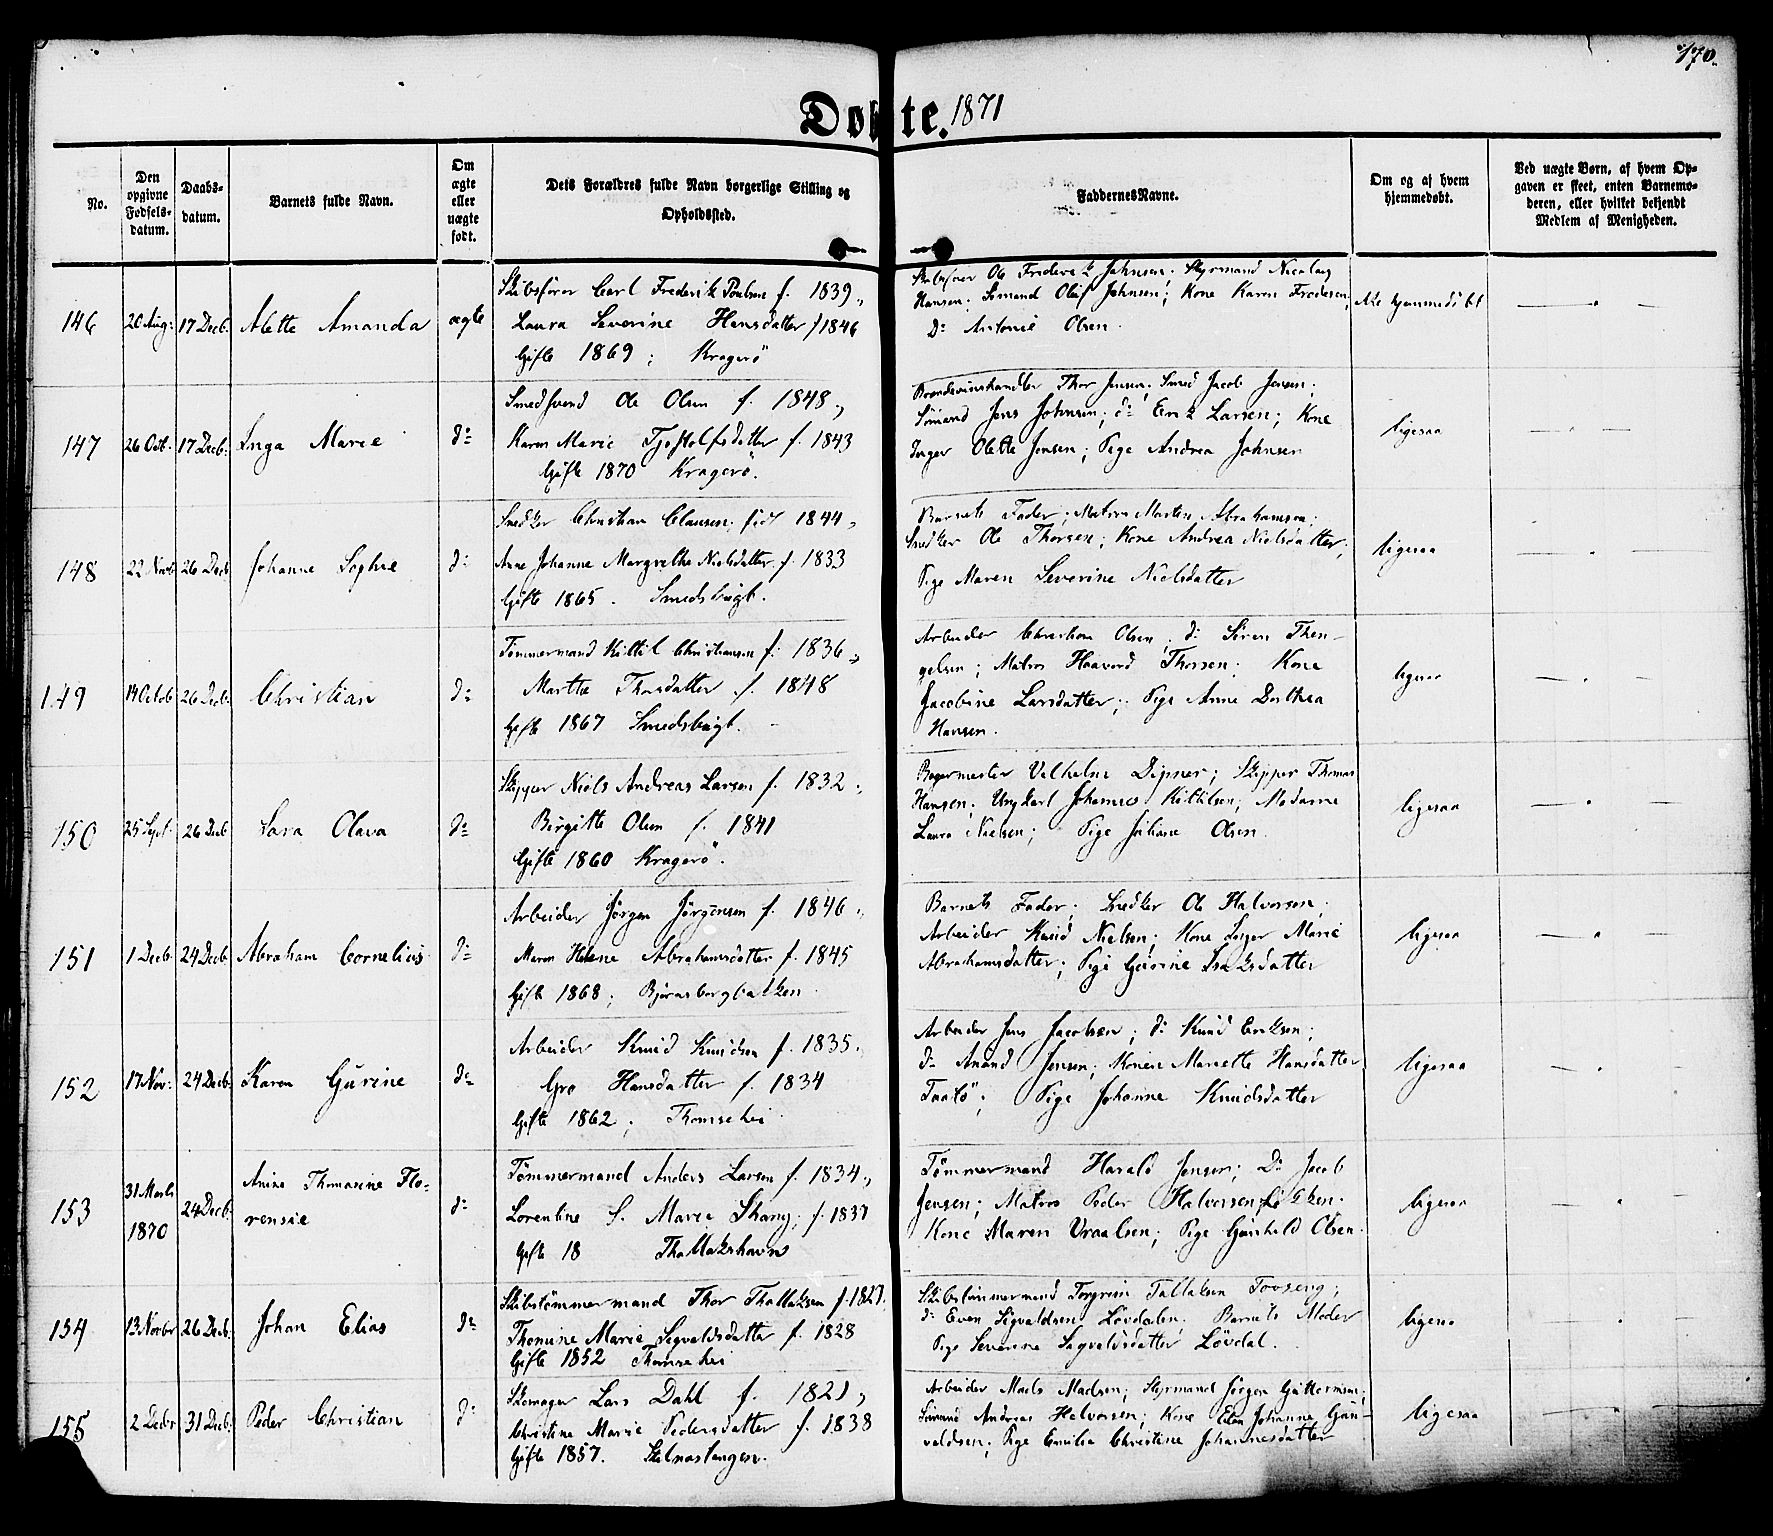 170.
Døbte. 1871
No.
Den opgivne Fødsels-datum.
Daabs-datum.
Barnets fulde Navn.
Om ægte eller uægte født.
Dets Forældres fulde Navn borgerlige Stilling og Opholdssted.
Faddernes Navne.
Om og af hvem hjemmedøbt.
Ved uægte Børn, af hvem Opgaven er skeet, enten Barnemoderen, eller hvilket bekjendt Medlem af Menigheden.
146 20 Aug: 17 Decb. Alette Amanda ægte
Skibsfører Carl Frederik Poulsen f. 1839,
Laura Severine Hansdatter f 1846
Gifte 1869; Kragerö
Skibsfører Ole Frederik Johnsen. Styrmand Nicolay
Hansen; Sömand Oluf Johnsen; Kone Karen Fredesen;
D: Antonie Olsen.
Ikke hjemmedöbt
147 26 Octb. 17 Decb. Inga Marie d:
Smedsvend Ole Olsen f. 1848,
Karen Marie Tjostolfsdatter f. 1843
Gifte 1870 Kragerö.
Brændevinshandler Thor Jensen; Smed Jacob Jensen;
Sömand Jens Johnsen; d: Erik Larsen; Kone
Inger Olette Jensen; Pige Andrea Johnsen
ligesaa
148 22 Novb 26 Decb Johanne Sophie d:
Snedker Christian Clausen. föd 1844,
Anne Johanne Margrethe Nielsdatter f. 1833
Gifte 1865. Smedsbugt.
Barnets Fader; Matros Morten Abrahamsen;
Snedker Ole Thorsen; Kone Andrea Nielsdatter;
Pige Maren Severine Nielsdatter
ligesaa
149 14 Octob 26 Decb. Christian d:
Tömmermand Kittil Christiansen f. 1836,
Marthe Thorsdatter f. 1848
Gifte 1867 Smedsbugt.
Arbeider Christian Olsen; d: Sören Then-
gelsen; Matros Haavard Thorsen; Kone
Jacobine Larsdatter; Pige Anne Dorthea
Hansen.
ligesaa
150 25 Sept. 26 Decb Sara Olava d:
Skipper Niels Andreas Larsen f. 1832,
Birgitte Olsen f. 1841
Gifte 1860 Kragerö.
Bagermester Vilhelm Dipner; Skipper Thomas
Hansen; Ungkarl Johannes Kittilsen; Madame
Laura Nielsen; Pige Juliane Olsen.
ligesaa
151 1 Decb. 24 Decb. Abraham Cornelius d:
Arbeider Jörgen Jörgensen f. 1846,
Maren Helene Abrahamsdatter f. 1845
Gifte 1868; Björnsborgbakken
Barnets Fader; Snedker Ole Halvorsen;
Arbeider Knud Nielsen; Kone Inger Marie
Abrahamsdatter; Pige Gurine Isaksdatter
ligesaa
152 17 Nov: 24 Decb. Karen Gurine d:
Arbeider Knud Knudsen f. 1835,
Gro Hansdatter f. 1834
Gifte 1862; Thomsehei
Arbeider Jens Jacobsen; d: Knud Eriksen;
d: Anund Jensen; Konen Mariette Hansdatter
Taatö; Pige Johanne Knudsdatter
ligesaa
153 31 Marts 1870 24 Decb. Anine Thomasine Flo-
rensie d:
Tömmermand Anders Larsen f. 1834,
Lorentine S. Marie Skang; f. 1837
Gifte 18 Thallakshavn
Tömmermand Harald Jensen; D: Jacob
Jensen; Matros Peder Halvorsen Lökken.
Kone Maren Vraalsen; Pige Gunhild Olsen.
ligesaa
154 13 Novbr 26 Decb. Johan Elias d:
Skibstömmermand Thor Thallaksen f. 1827,
Thomine Marie Sigvaldsdatter f. 1828
Gifte 1852 Thomsehei
Skibstömmermand Torgrim Tallaksen Tovseng;
d: Even Sigvaldsen Lövdalen. Barnets Moder
Pige Severine Sigvaldsdatter Lövdal.
ligesaa
155 2 Decbr 31 Decb. Peder Christian d:
Skomager Lars Dahl f. 1821,
Christine Marie Pedersdatter f. 1838
Gifte 1857. Skilnastangen.
Arbeider Mads Madsen; Styrmand Jörgen Guttormsen;
Sömand Andreas Halvorsen; Kone Elen Johanne Gun-
valdsen; Pige Emilie Christine Johannesdatter
ligesaa